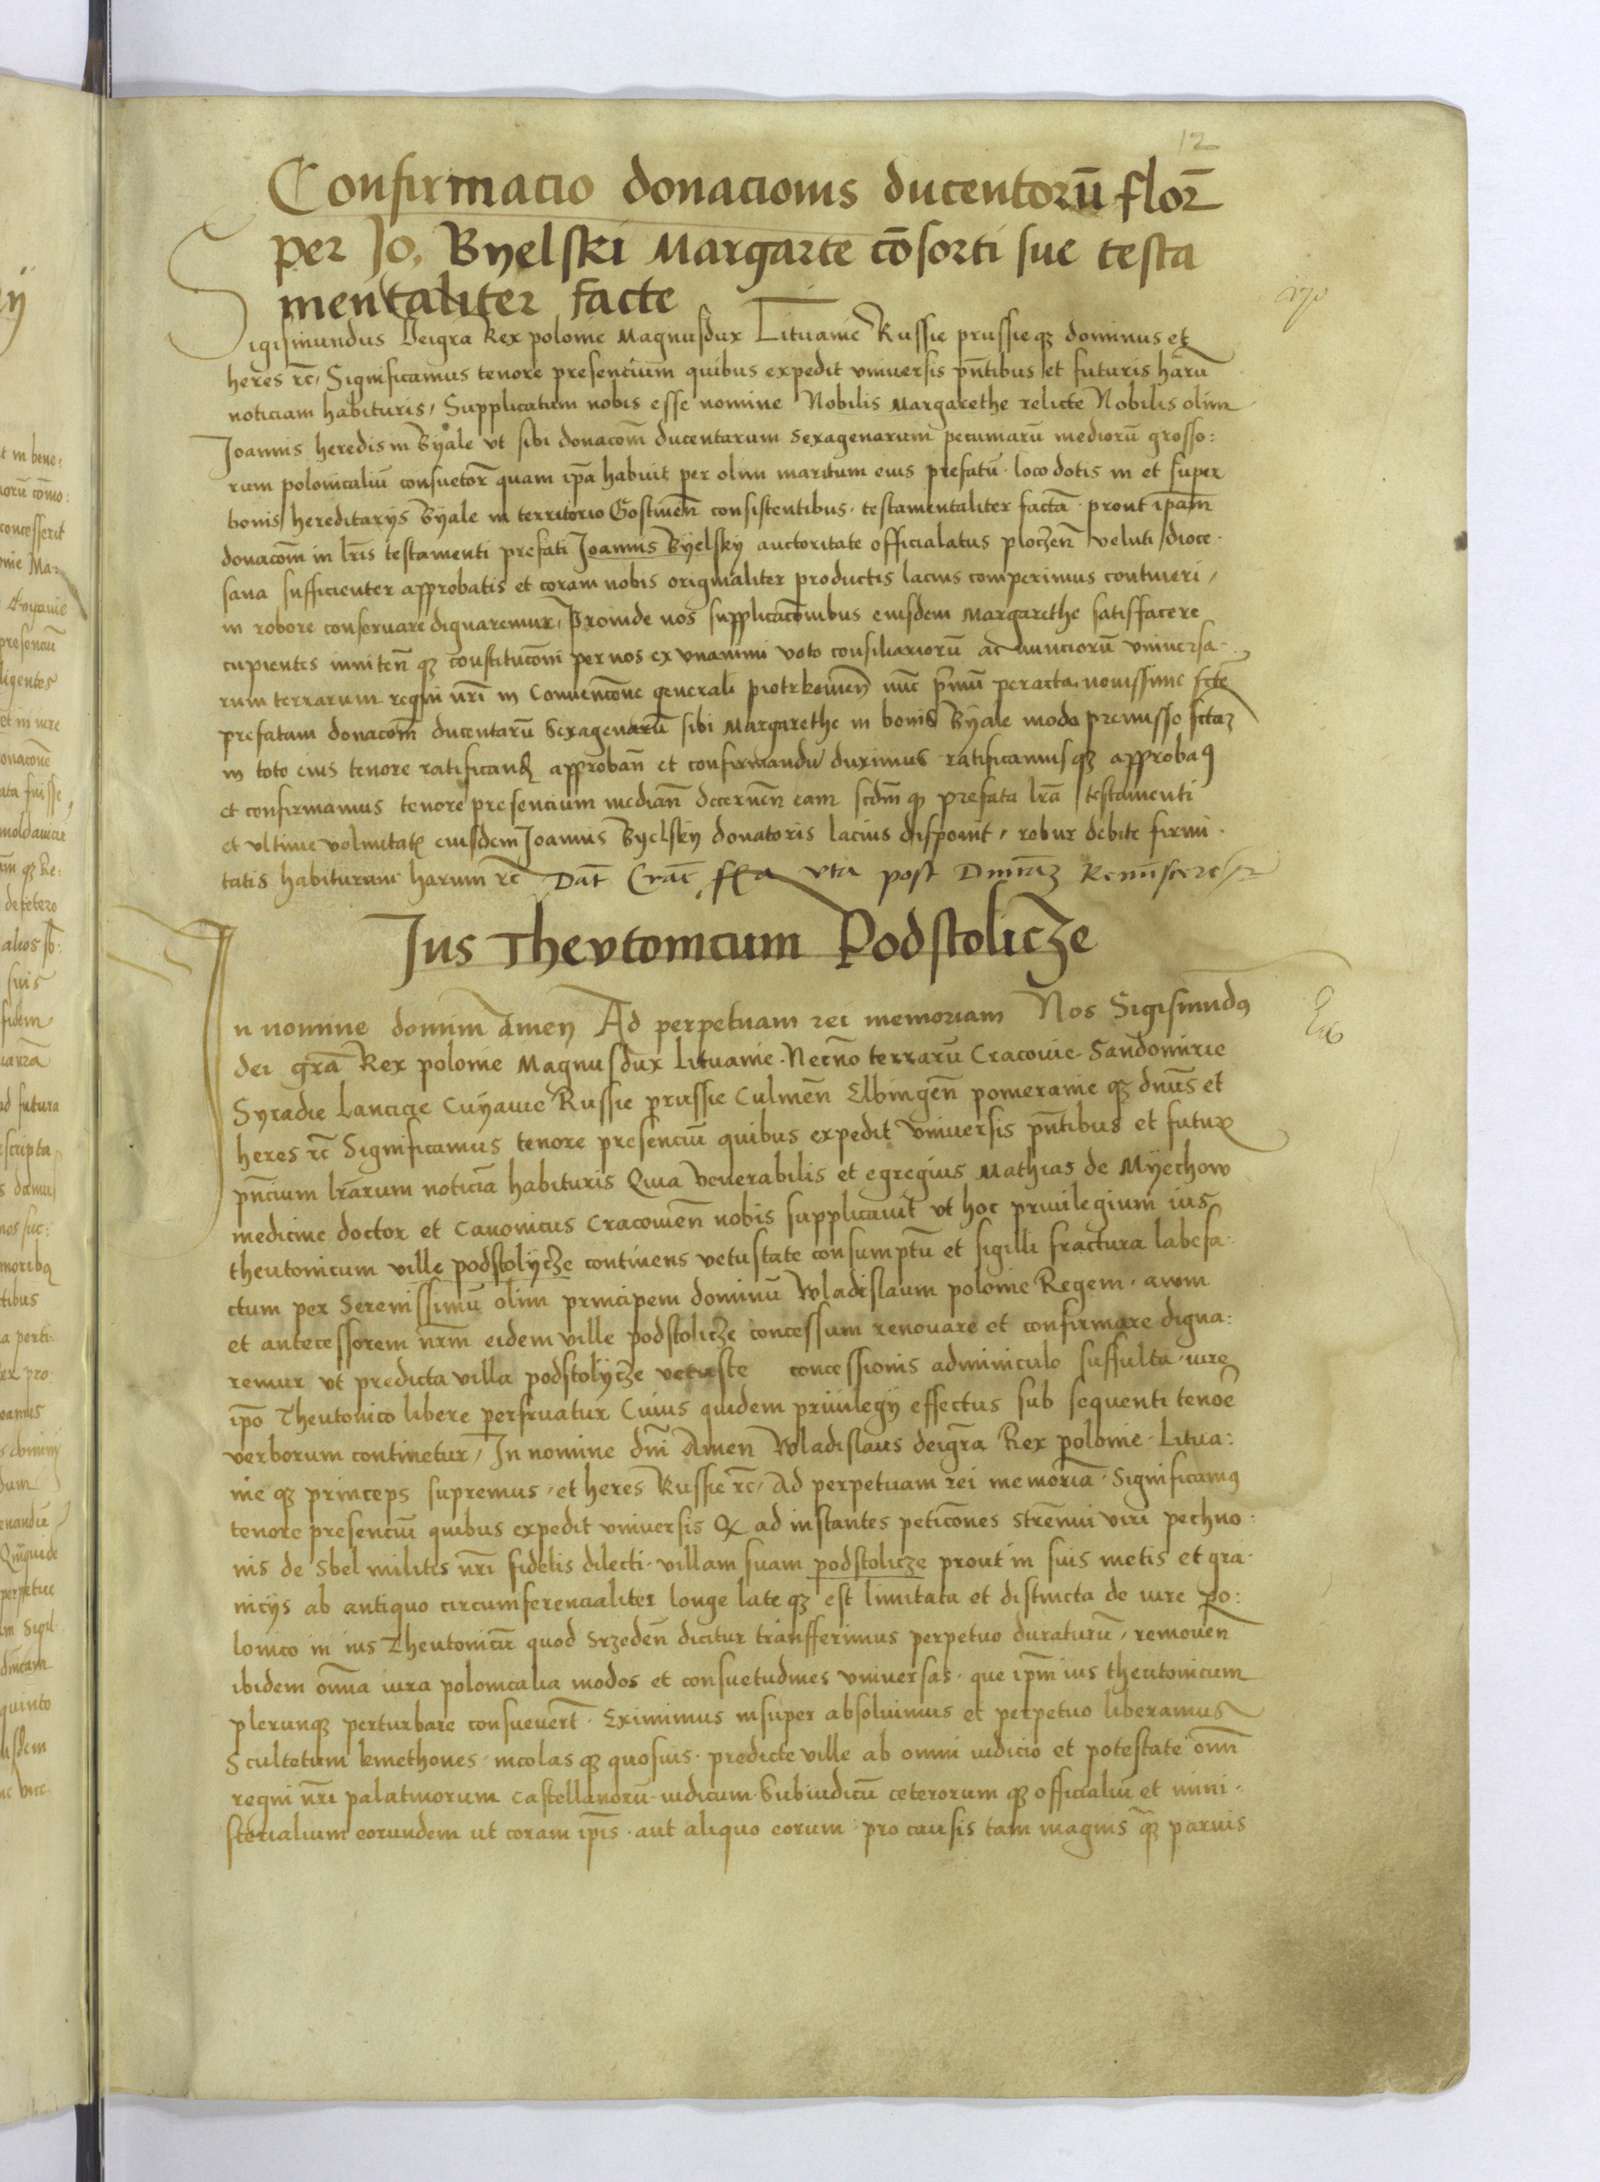 12
Confirmacio donacionis ducentorū florꝫ
per Jo. Byelski Margarte cōsorti sue testa
mentaliter facte
Sigismundus Deigra Rex polonie Magnusdux Lituanie Russie prussieqꝫ dominus et
heres rc̄, Significamus tenore presencium quibus expedit vniuersis pn̄tibus et futuris harū
noticiam habituris, Supplicatum nobis esse nomine Nobilis Margarethe relicte Nobilis olim
Joannis heredis in Byale vt sibi donacōm ducentarum sexagenarum pecuniarū mediorū grosso:
rum polonicaliū consuetorꝫ quam ip̄a habuit per olim maritum eius prefatū. loco dotis in et super
bonis hereditarijs Byale in territorio Gostinen̄ consistentibus. testamentaliter factā. prout ip̄am
donacōm in lr̄is testamenti prefati Joannis Byelsky auctoritate officialatus ploczen̄ veluti dioce.
sana sufficienter approbatis et coram nobis originaliter productis lacius comperimus contineri,
in robore conseruare dignaremur, Proinde nos supplicacōnibus eiusdem Margarethe satisfacere
cupientes inniten̄ qꝫ constitucōni per nos ex vnanimi voto consiliariorū ac nunciorū vniuersa.
rum terrarum regni nr̄i in Conuencōne generali piotrkowien̄ nūc pr̄mū peracta. nouissime fc̄te
prefatam donacōm ducentarū Sexagenarū sibi Margarethe in bonis Byale modo premisso fctaꝫ
in toto eius tenore ratificand̄ approban̄ et confirmandū duximus ratificamusqꝫ approbaꝰ
et confirmamus tenore presencium median̄ decernen̄ eam scdm̄ qꝫ prefata lr̄a testamenti
et vltime voluntatꝭ eiusdem Joannis Byelsky donatoris lacius disponit, robur debite firmi.
tatis habituram harum rc̄ Dat̄ Crac̄ fꝭa vta post Dnīcaꝫ Reminiscere
Jus Thevtonicum Podstolicze
In nomine domini Amen Ad perpetuam rei memoriam Nos Sigismundꝰ
dei grā Rex polonie Magnusdux Lituanie. Necnō terrarū Cracouie. Sandomirie
Syradie Lancicie Cuyauie Russie prussie Culmen̄ Elbingen̄ pomeranie qꝫ dn̄us et
heres rc̄ Significamus tenore presenciū quibus expedit vniuersis pn̄tibus et futurꝭ
pn̄cium lr̄arum noticiā habituris Quia venerabilis et egregius Mathias de Myechow
medicine doctor et Canonicus Cracouien̄ nobis supplicauit vt hoc priuilegium ius
theutonicum ville podstolycze continens vetustate consumptū et sigilli fractura labefa.
ctum per Serenissimū olim principem dominū Wladislaum polonie Regem. auum
et antecessorem nr̄m eidem ville podstolicze concessum renouare et confirmare digna:
remur vt predicta villa podstolycze vetuste concessionis adminiculo suffulta iure
ip̄o Theutonico libere perfruatur Cuius quidem priuilegij effectus sub sequenti tenoe
verborum continetur, In nomine dn̄i Amen Wladislaus deigra Rex polonie. Litua:
nie qꝫ princeps supremus, et heres Russie rc̄, Ad perpetuam rei memoriā. Significamꝰ
tenore presenciū quibus expedit vniuersis Qꝫ ad instantes peticōnes strēnui viri pechno:
nis de Sbel militis nr̄i fidelis dilecti. villam suam podstolicze prout in suis metis et gra.
nicijs ab antiquo circumferencialiter longe lateqꝫ est limitata et distincta de iure po:
lonico in ius Theutonicū quod Srzeden̄ dicitur transferimus perpetuo duraturū, remouen̄
ibidem om̄ia iura polonicalia modos et consuetudines vniuersas. que ip̄m ius theutonicum
plerunqꝫ perturbare consueuert̄. Eximimus insuper absoluimus et perpetuo liberamus
Scultetum kmethones. incolas qꝫ quosuis. predicte ville ab omni iudicio et potestate om̄i
regni nr̄i palatinorum Castellanorū. iudicum. Subiudicū ceterorum qꝫ officialiū et mini.
sterialium eorundem ut coram ip̄is. aut aliquo eorum. pro causis tam magnis qꝫ paruis